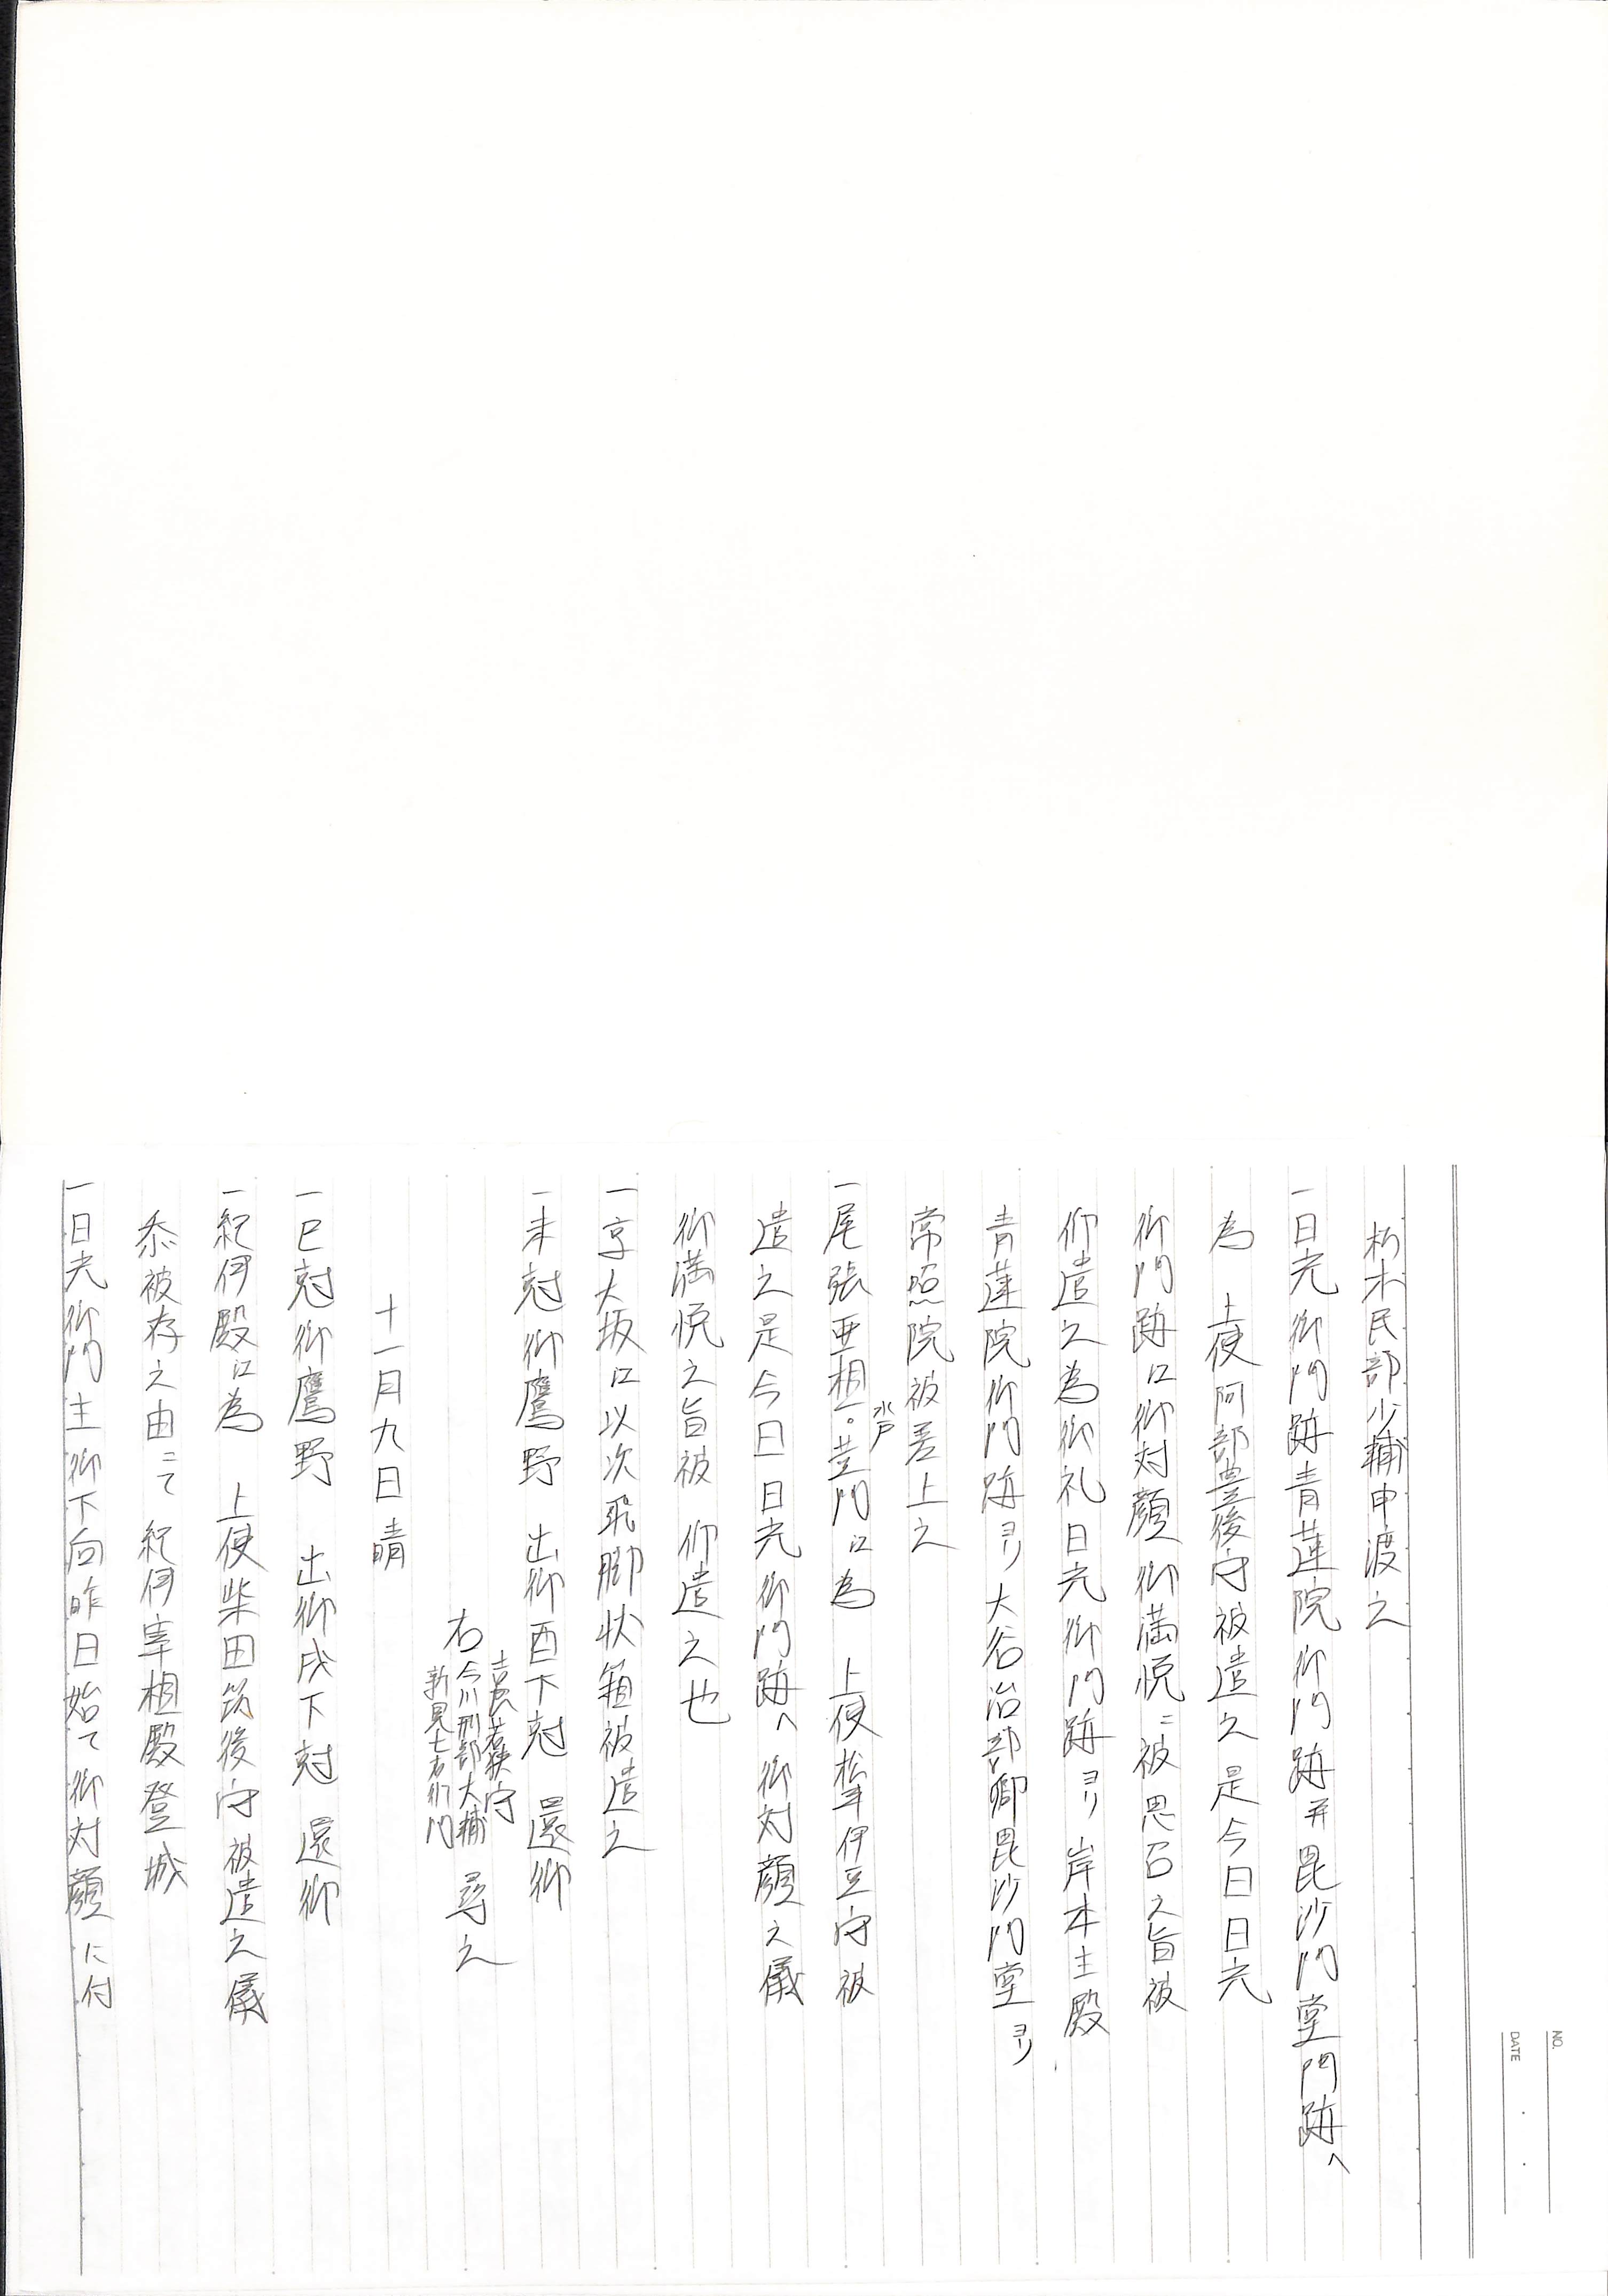 朽木民部少輔申渡之
一日光御門跡青蓮院御門跡并毘沙門堂門跡へ
為　上使阿部豊後守被遣之是今日日光
御門跡江御対顔御満悦ニ被思召之旨被
仰遣之為御礼日光御門跡ヨリ岸本主殿
青蓮院御門跡ヨリ大谷治部卿毘沙門堂ヨリ
常照院被差上之
水戸
一尾張亜相・黄門江為　上使松平伊豆守被
遣之是今日日光御門跡へ御対顔之儀
御満悦之旨被　仰遣之也
一京大坂江以次飛脚状箱被遣之
一未尅御鷹野　出御酉下尅　還御
吉良若狭守
右今川刑部大輔　尋之
新見七右衛門
十一月九日　晴
一巳尅御鷹野　出御戌下尅　還御
一紀伊殿江為　上使柴田筑後守被遣之儀
忝被存之由ニて　紀伊宰相殿登城
一日光御門主御下向昨日始て御対顔に付
NO.
DATE　・　・